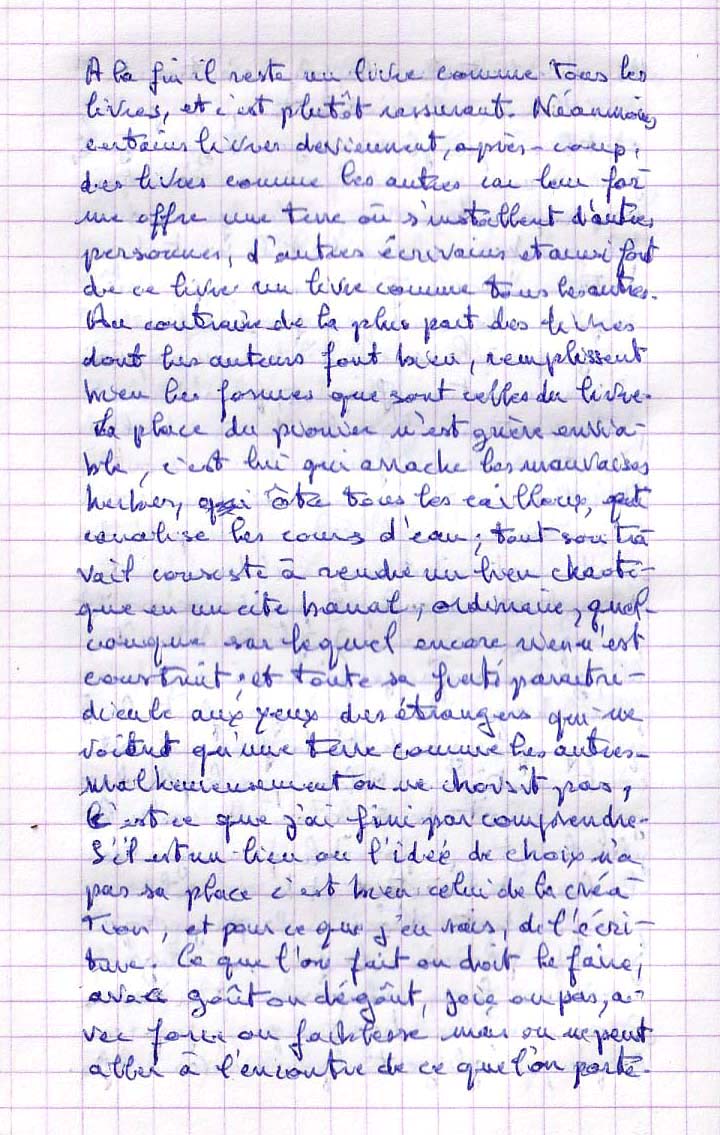 A la fin il reste un livre comme tous les
livres, et c'est plutôt rassurant. Néanmoins
certains livres deviennent, après-coup,
des livres comme les autres car leur for
me offre une terre où s'installent d'autres
personnes, d'autres écrivains et ainsi font
de ce livre un livre comme tous les autres.
Au contraire de la plus part des livres
dont les auteurs font bien, remplissent
bien les formes que sont celles du livre.
La place du pionnier n'est guère envia-
ble, c'est lui qui arrache les mauvaises
herbes, qui ôte tous les cailloux, qui
canalise les cours d'eau; tout son tra
vail consiste à rendre un lieu chaoti-
que en un cite banal, ordinaire, quel-
conque sur lequel encore rien n'est
construit, et toute sa paraît ri-
dicule aux yeux des étrangers qui ne
voient qu'une terre comme les autres.
Malheureusement on ne choisit pas,
c'est ce que j'ai fini par comprendre.
S'il est un lieu où l'idée de choix n'a
pas sa place c'est bien celui de la créa-
tion, et pour ce que j'en sais, de l'écri-
ture. Ce que l'on fait on doit le faire,
avec goût ou dégoût, joie ou pas, a-
vec force ou faiblesse mais on ne peut
aller à l'encontre de ce que l'on porte.